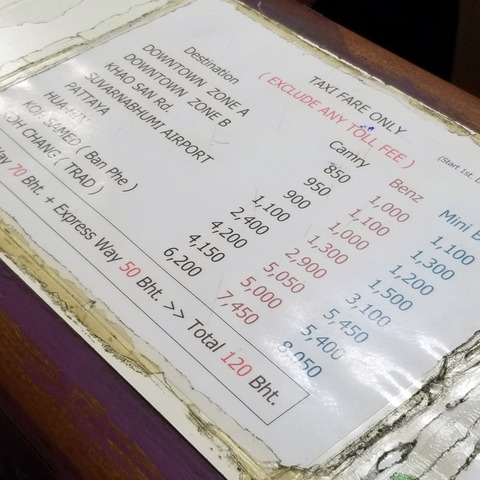 TAXI FARE ONLY
( EXCLUDE ANY TOLL FEE )
(Start 1st.
Destination Camry Benz Mini B
DOWNTOWN ZONE A 850 1,000 1,100
DOWNTOWN ZONE B 950 1,100 1,300
KHAO SAN Rd. 900 1,000 1,200
SUVARNABHUMI AIRPORT 1,100 1,300 1,500
PATTAYA 2,400 2,900 3,100
HUA HIN 4,200 5,050 5,450
KOH SAMED ( Ban Phe ) 4,150 5,000 5,400
OH CHANG ( TRAD ) 6,200 7,450 8,050
Way 70 Bht. + Express Way 50 Bht. >> Total 120 Bht.